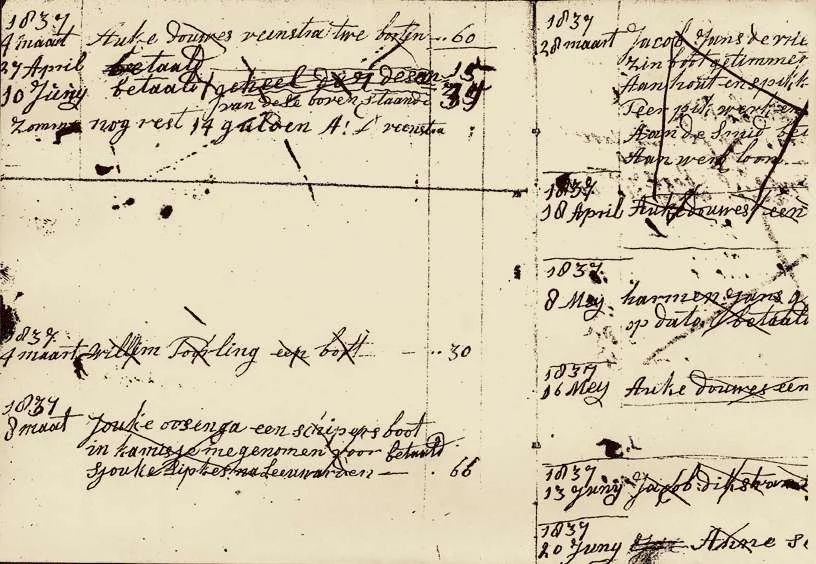 1837
4 maart Auke douwes veenstra twe boten 60
27 April betaald 15
10 Juny betaald geheel door desen
van dese boven staande
Zomma nog rest 14 gulden A: veenstra
1837
4 maart willem Toorling een bott 30
1837
8 maart Jouke oosenga een schipers boot
in kamissie megenomen voor betaald
Sjouke Zipkes na Leeuwarden 66
1837
28 maart Jacob Jans de vrie
Zin boot getimmer
Aan hout en spik
Teer pik werk en
Aan de Smid
Aan werk loon
1837
18 April Auke douwes een
1837
8 Mey harmen Jans
op dato betaald
1837
16 Mey Auke douwes een
1837
13 Juny Jacob dikstra
1837
20 Juny Anne